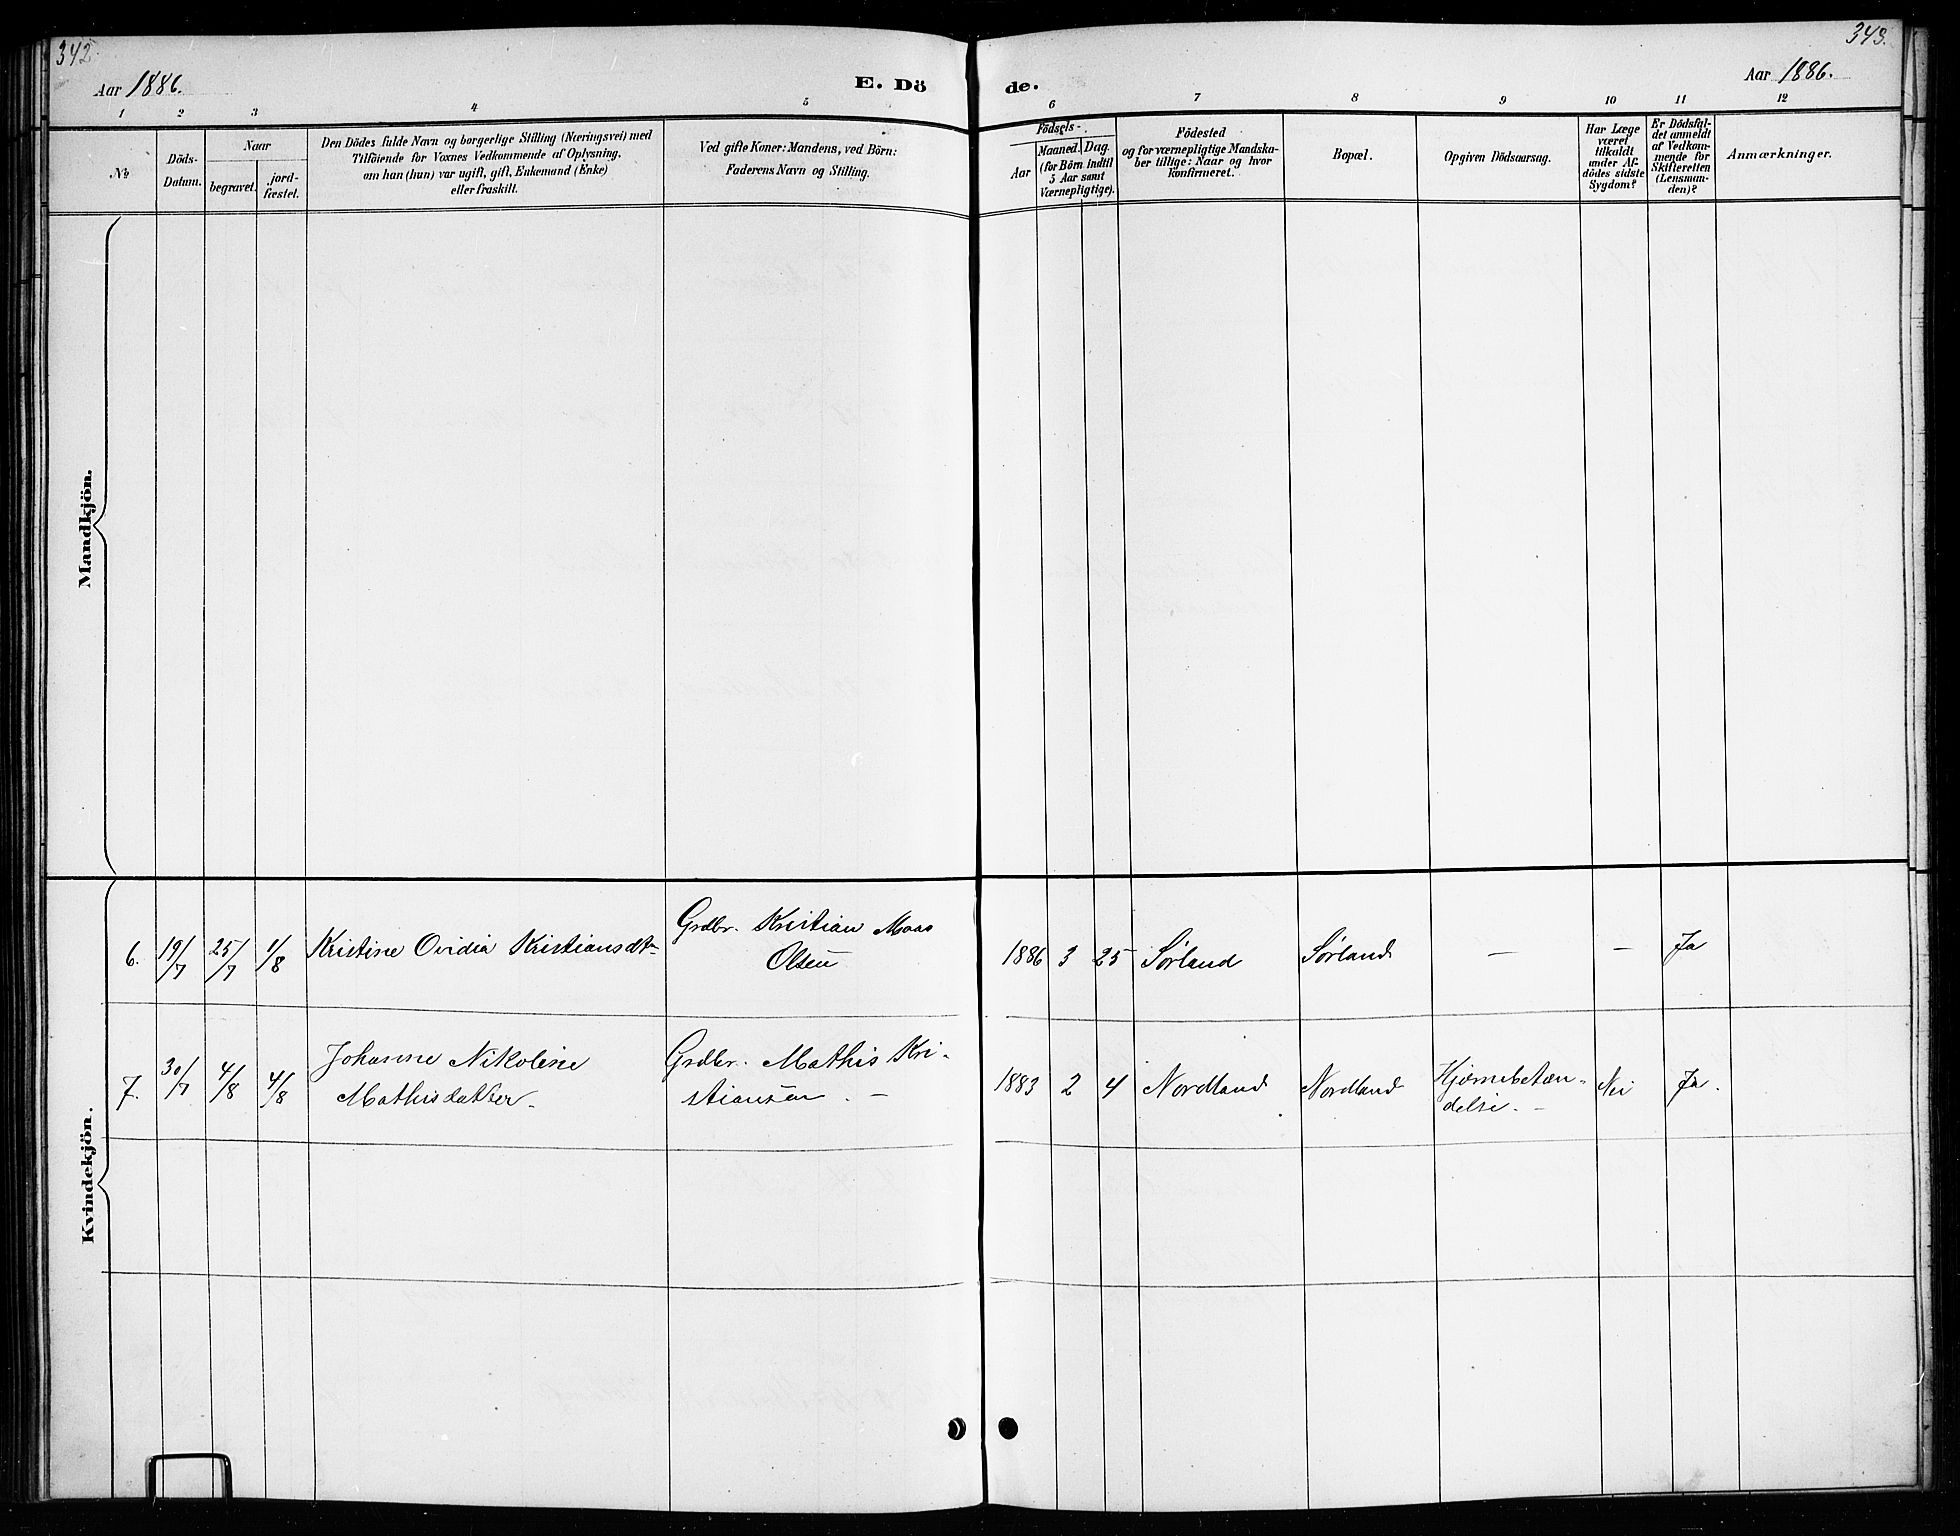 342
343.
Aar 1886.
E. Dö
de.
Aar 1886.
1 2 3 4 5 6 7 8 9 10 11 12
No
Döds-
Datum.
Naar
begravet.
jord-
fæstet.
Den Dödes fulde Navn og borgerlige Stilling (Næringsvei) med
Tilföiende for Voxnes Vedkommende af Oplysning,
om han (hun) var ugift, gift, Enkemand (Enke)
eller fraskilt.
Ved gifte Koner: Mandens, ved Börn:
Faderens Navn og Stilling.
Födsels-
Aar
Maaned. Dag.
(for Börn indtil
5 Aar samt
Værnepligtige).
Födested
og for værnepligtige Mandska-
ber tillige: Naar og hvor
konfirmeret.
Bopæl.
Opgiven Dödsaarsag.
Har Læge
været
tilkaldt
under Af-
dödes sidste
Sygdom?
Er Dödsfal-
det anmeldt
af Vedkom-
mende for
Skifteretten
(Lensman-
den)?
Anmærkninger.
Mandkjön.
Kvindekjön.
6. 19/7 25/7 1/8 Kristine Ovidia Kristiansdtr
Grdbr. Kristian Moas
Olsen
1886 3 25 Sørland Sørland — — Ja
7. 30/7 4/8 4/8 Johanne Nikoline
Mathisdatter.
Grdbr. Mathis Kri-
stiansen. —
1883 2 4 Nordland Nordland Hjernebetæn-
delse. — Nei Ja.